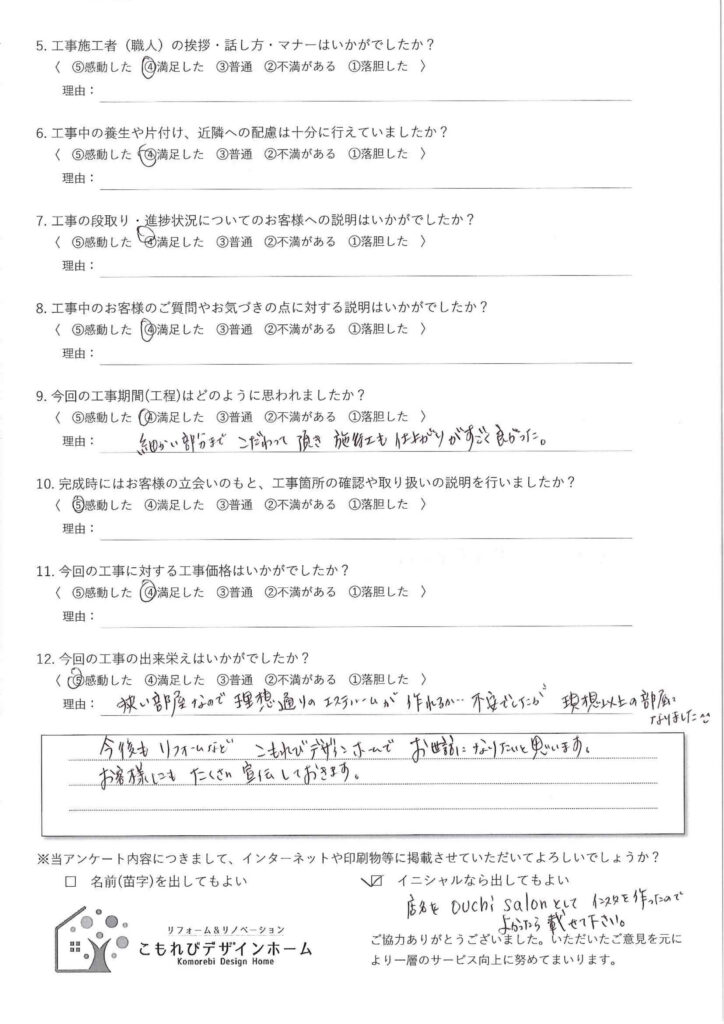 5. 工事施工者（職人）の挨拶・話し方・マナーはいかがでしたか？
〈 ⑤感動した ④満足した ③普通 ②不満がある ①落胆した 〉
理由：
6. 工事中の養生や片付け、近隣への配慮は十分に行えていましたか？
〈 ⑤感動した ④満足した ③普通 ②不満がある ①落胆した 〉
理由：
7. 工事の段取り・進捗状況についてのお客様への説明はいかがでしたか？
〈 ⑤感動した ④満足した ③普通 ②不満がある ①落胆した 〉
理由：
8. 工事中のお客様のご質問やお気づきの点に対する説明はいかがですか？
〈 ⑤感動した ④満足した ③普通 ②不満がある ①落胆した 〉
理由：
9. 今回の工事期間(工程)はどのように思われましたか？
〈 ⑤感動した ④満足した ③普通 ②不満がある ①落胆した 〉
理由： 細かい部分まで こだわって 頂き 施工も 仕上がりがすごく良かった。
10. 完成時にはお客様の立会いのもと、工事箇所の確認や取り扱いの説明を行いましたか？
〈 ⑤感動した ④満足した ③普通 ②不満がある ①落胆した 〉
理由：
11. 今回の工事に対する工事価格はいかがでしたか？
〈 ⑤感動した ④満足した ③普通 ②不満がある ①落胆した 〉
理由：
12. 今回の工事の出来栄えはいかがでしたか？
〈 ⑤感動した ④満足した ③普通 ②不満がある ①落胆した 〉
理由： 狭い部屋なので 理想通りの エステルームが 作れるか… 不安でしたが 理想以上の部屋に
なりました
今後も リフォームなど こもれびデザインホームで お世話になりたいと思います。
お客様にも たくさん 宣伝しておきます。
※当アンケート内容につきまして、インターネットや印刷物等に掲載させていただいてよろしいでしょうか？
□ 名前(苗字)を出してもよい ☑ イニシャルなら出してもよい
店名を ouchi salonとして インスタを作ったので
よかったら 載せて下さい。
リフォーム＆リノベーション
こもれびデザインホーム
Komorebi Design Home
ご協力ありがとうございました。いただいたご意見を元に
より一層のサービス向上に努めてまいります。